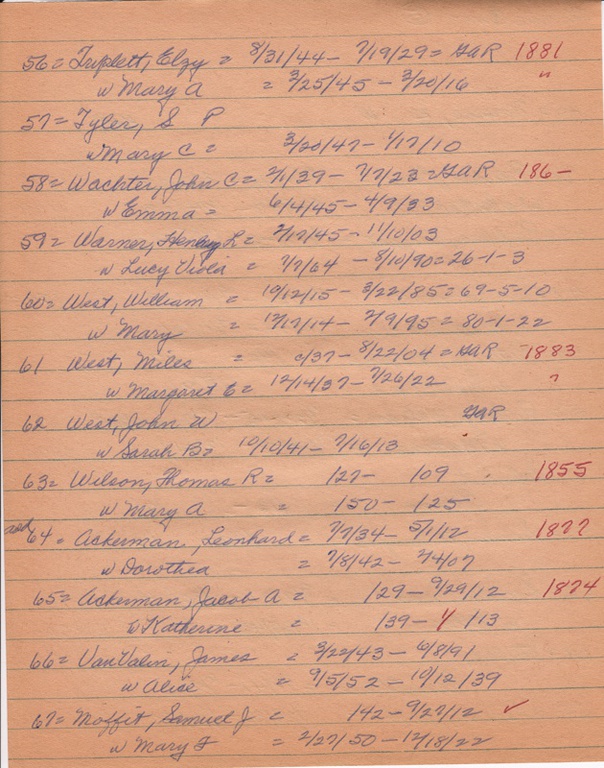 56 = Triplett, Elzy = 8/31/44 - 7/19/29 = GAR 1881
w Mary A = 3/25/45 - 3/20/16 "
57 = Tyler, S P
w Mary C = 3/20/47 - 1/17/10
58 = Wachter, John C = 2/1/39 - 7/7/23 = GAR 186-
w Emma = 6/4/45 - 4/9/33
59 = Warner, Henry L = 2/17/45 - 11/10/03
w Lucy Viola = 7/7/64 - 8/10/90 = 26-1-3
60 = West, William = 10/12/15 - 3/22/85 = 69-5-10
w Mary = 12/17/14 - 2/9/95 = 80-1-22
61 West, Miles = c/37 - 8/22/04 = GAR 1883
w Margaret E = 12/14/37 - 7/26/22 "
62 West, John W GAR
w Sarah B = 10/10/41 - 7/16/13
63 = Wilson, Thomas R = 127 - 109 1855
w Mary A = 150 - 125
64 = Ackerman, Leonhard = 7/7/34 - 5/1/12 1877
w Dorothea = 7/8/42 - 2/4/07
65 = Ackerman, Jacob A = 129 - 9/29/12 1874
w Katherine = 139 - 1/113
66 = VanValin, James = 3/22/43 - 6/8/91
w Alice = 9/5/52 - 10/12/39
67 = Moffit, Samuel J = 142 - 9/27/12 ✓
w Mary J = 2/27/50 - 12/18/22